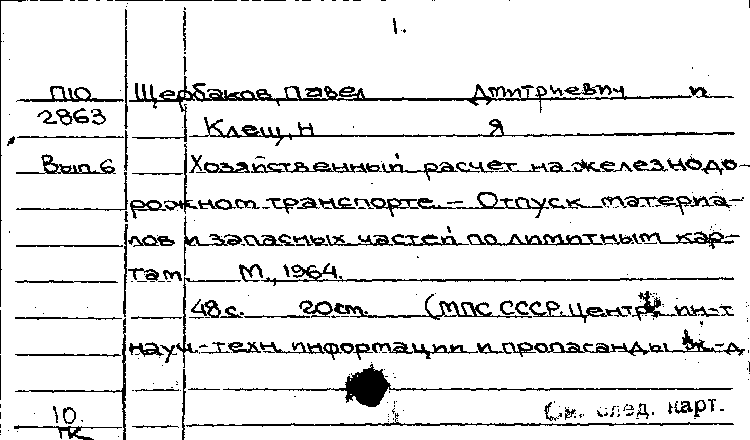 1.
П10 Щербаков, Павел Дмитриевич и
2863 Клещ, Н Я
Вып.6 Хозяйственный расчет на железнодо-
рожном транспорте. — Отпуск материа-
лов и запасных частей по лимитным кар-
там. М., 1964.
48 с. 20 см. (МПС СССР. Центр. ин-т
науч.-техн. информации и пропаганды ж.-д.
10. См. след. карт.